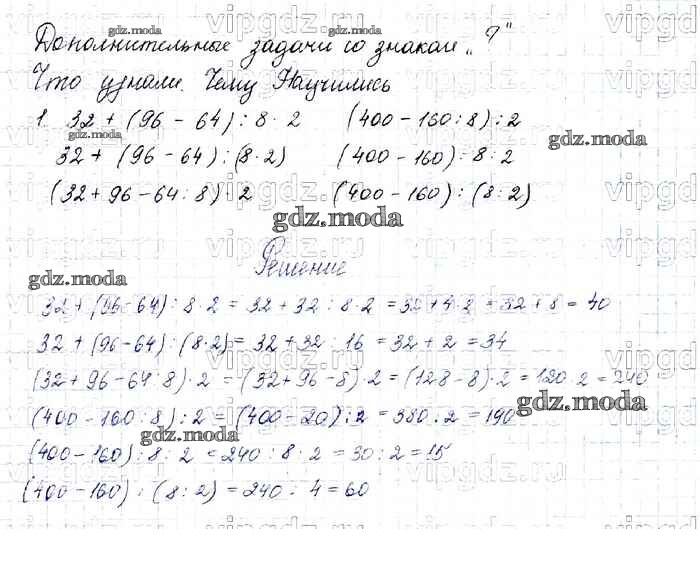 Дополнительные задачи со знаком „?"
Что узнали. Чему Научились
1. 32 + (96 - 64) : 8 · 2 (400 - 160 : 8) : 2
32 + (96 - 64) : (8 · 2) (400 - 160) : 8 : 2
(32 + 96 - 64 : 8) · 2 (400 - 160) : (8 : 2)
Решение
32 + (96 - 64) : 8 · 2 = 32 + 32 : 8 · 2 = 32 + 4 · 2 = 32 + 8 = 40
32 + (96 - 64) : (8 · 2) = 32 + 32 : 16 = 32 + 2 = 34
(32 + 96 - 64 : 8) · 2 = (32 + 96 - 8) · 2 = (128 - 8) · 2 = 120 · 2 = 240
(400 - 160 : 8) : 2 = (400 - 20) : 2 = 380 : 2 = 190
(400 - 160) : 8 : 2 = 240 : 8 : 2 = 30 : 2 = 15
(400 - 160) : (8 : 2) = 240 : 4 = 60
gdz.moda
vipgdz.ru